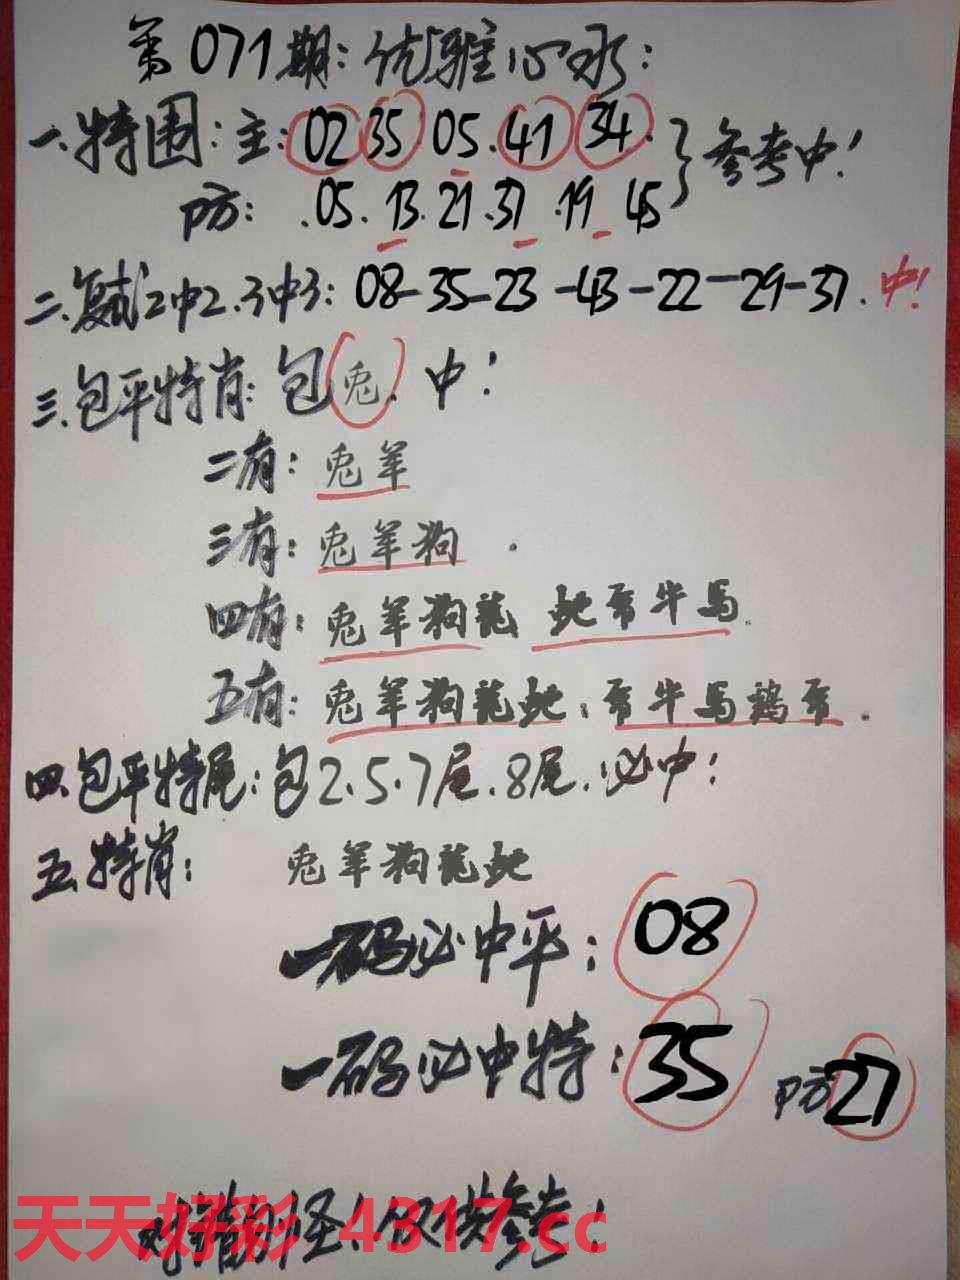 第071期:优雅心水:
一.特围:主:02 35.05.41 34.
防:.05.13.21.37.19.45
}参考中!
二.复试2中2.3中3:08-35-23-43-22-29-37.中!
三.包平特肖:包兔.中!
二有:兔羊
三有:兔羊狗.
四有:兔羊狗龍 蛇 牛马.
五有:兔羊狗龍蛇. 牛马鷄
四.包平特尾:包2.5.7尾.8尾.必中!
五.特肖: 兔羊狗龍蛇
一码必中平:08
一码必中特:35 防27
对错勿怪!仅供参考!
天天好彩 4317.cc